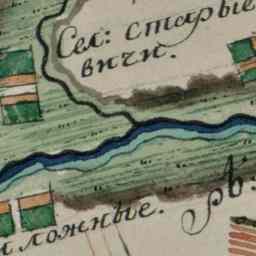 Сел: старые
вичи.
ложные.
рѣ: